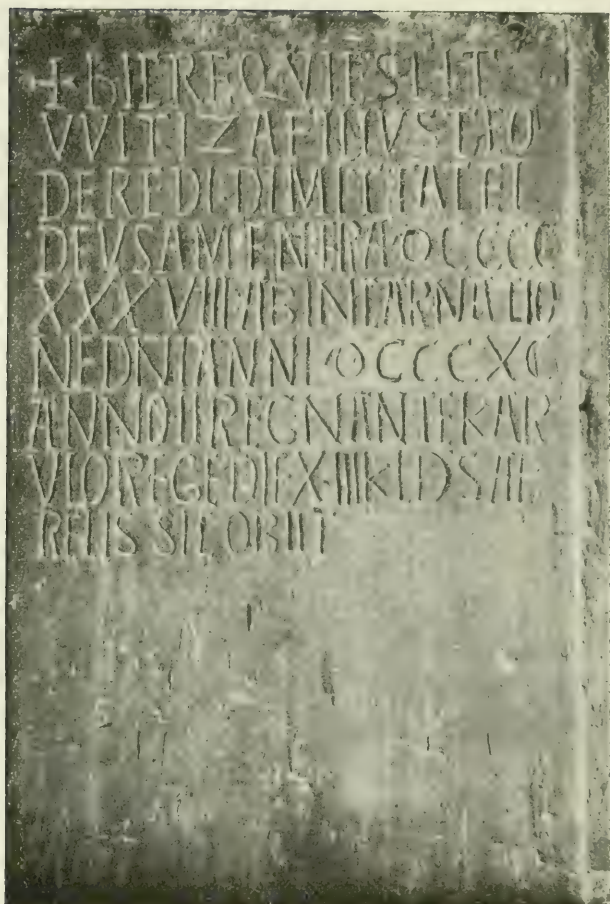 + hIC REQVIESCIT
VVITIZA FILIVS TEO
DEREDI DIMITTAT EI
DEVS AMEN ERA DCCCC
XXXVIII AB INCARNATIO
NE DNI ANNI DCCCXC
ANNO II REGNANTE KAR
VLO REGE DIE X IIII KLDS AP
RELIS SIC OBIIT